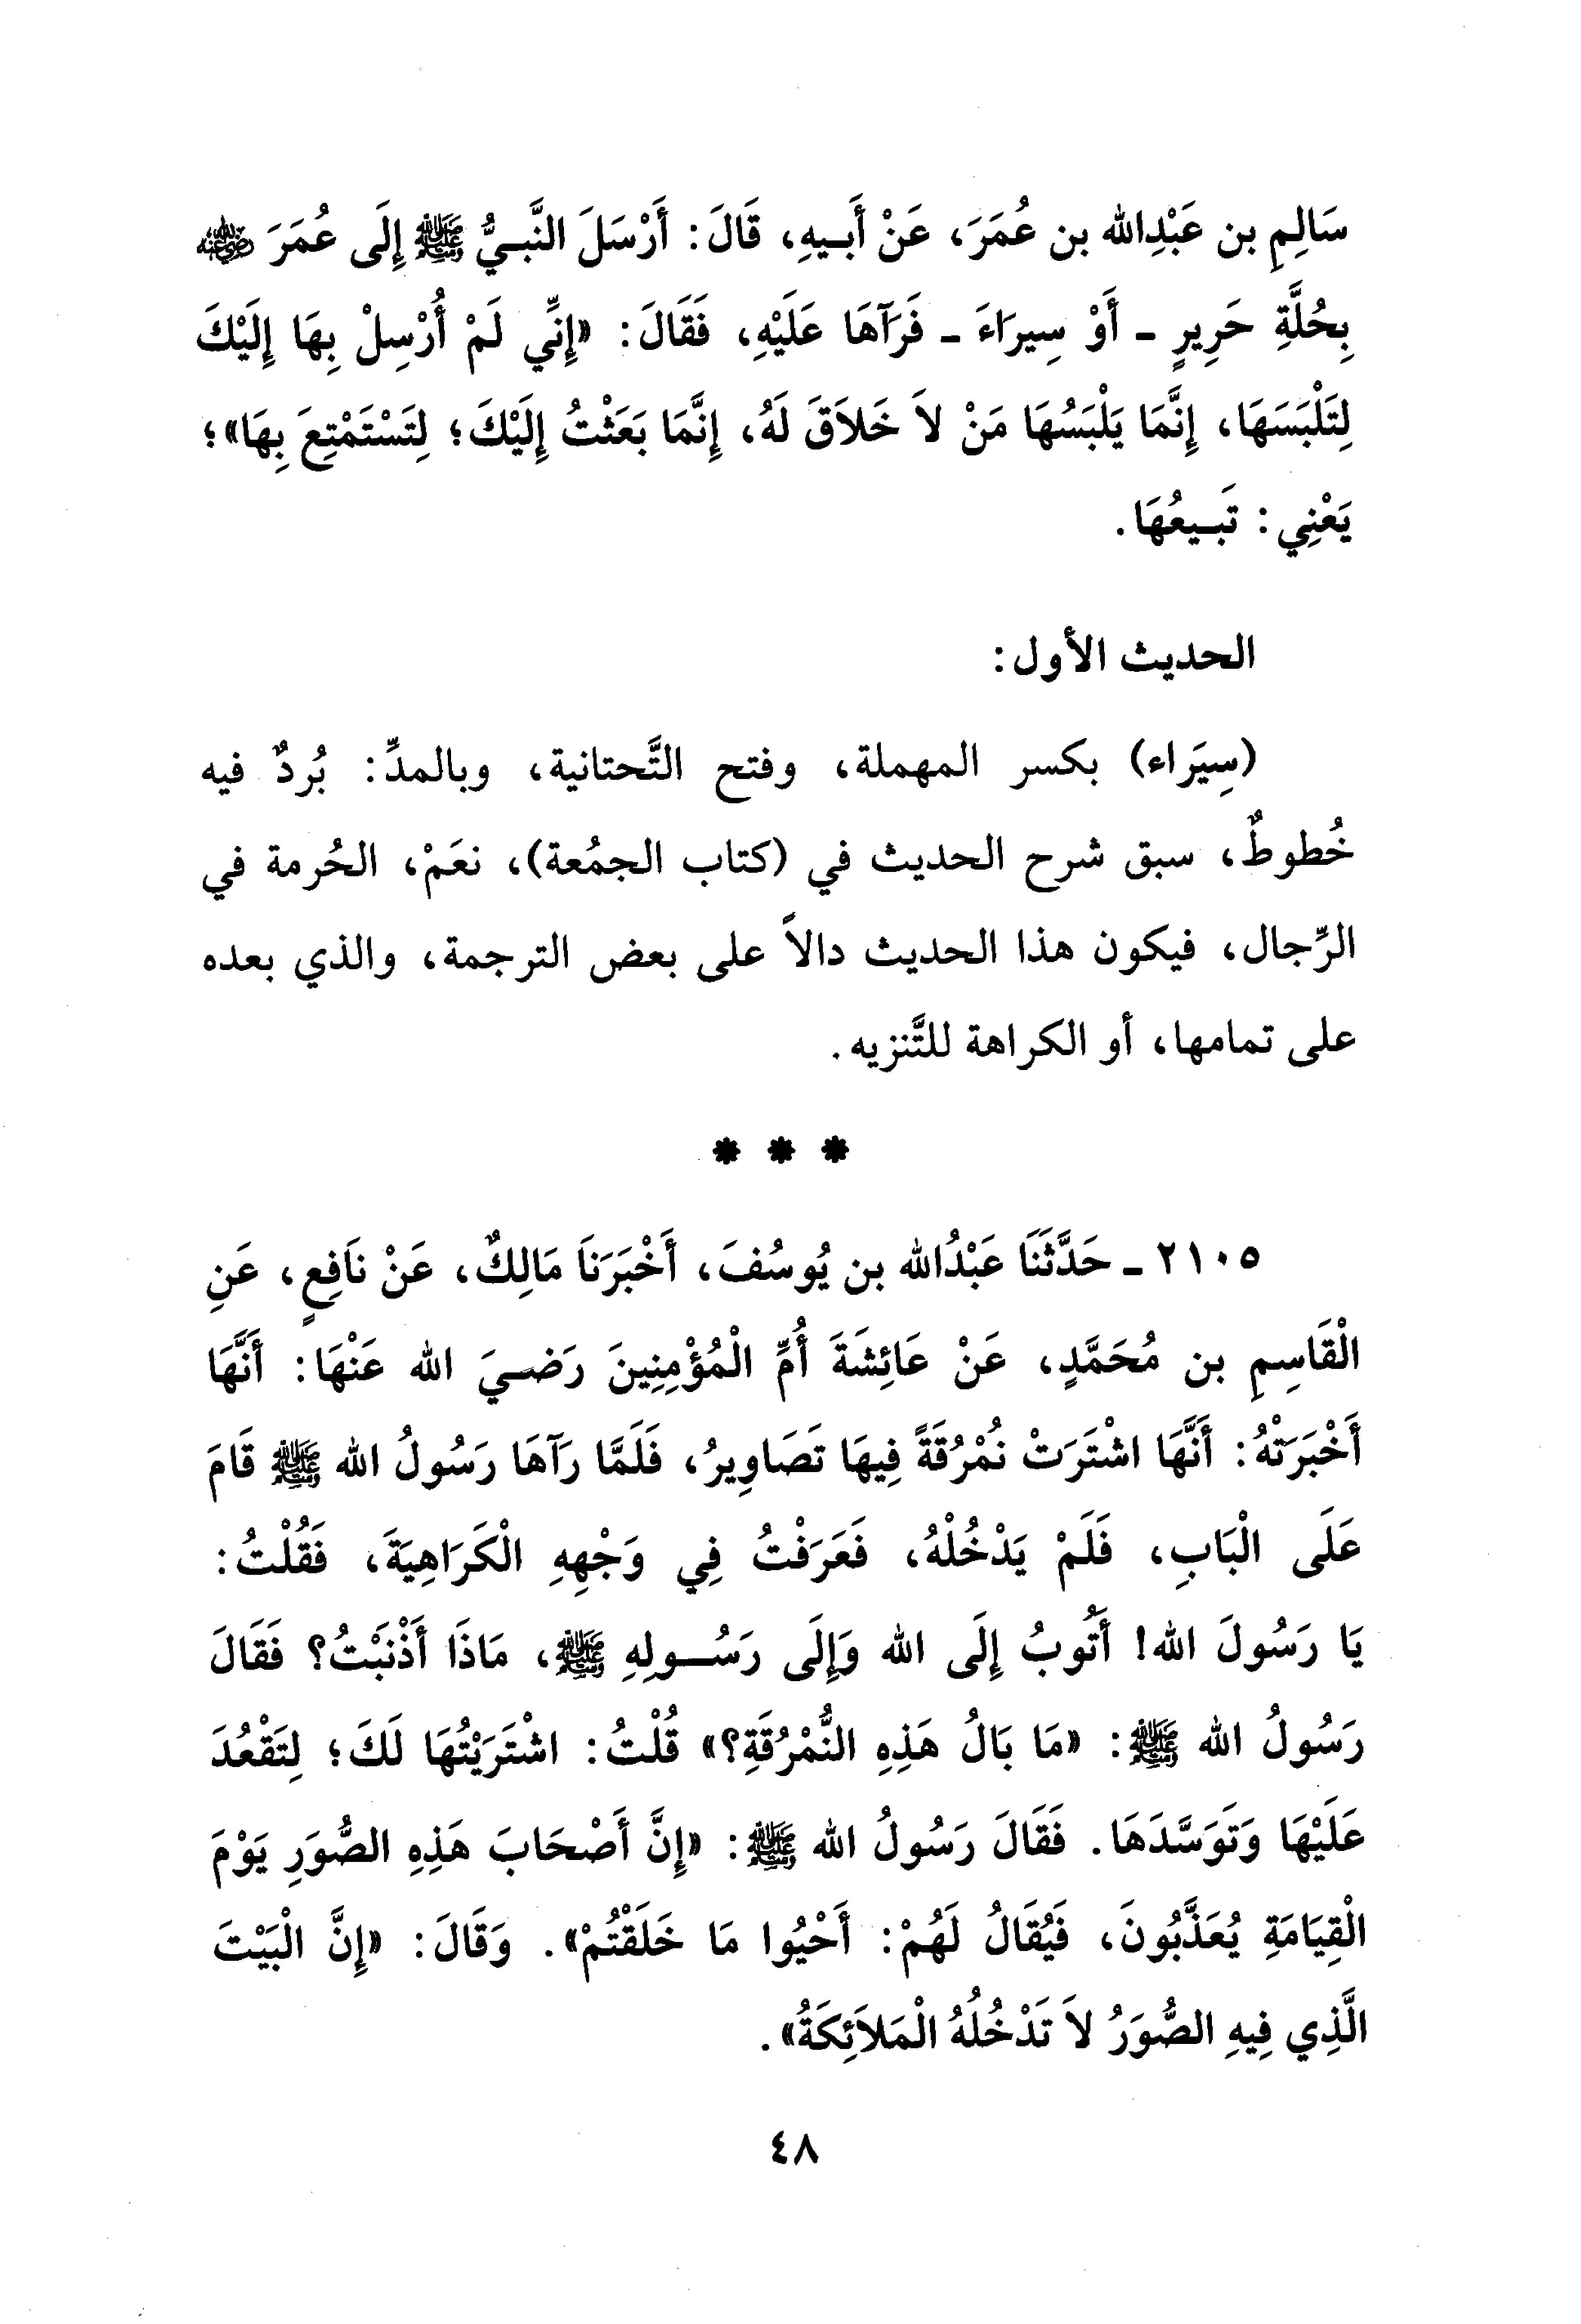 سَالِمِ بن عَبْدِالله بن عُمَرَ، عَنْ أَبِيهِ، قَالَ: أَرْسَلَ النَّبِيُّ ﷺ إِلَى عُمَرَ ﵁
بِحُلَّةِ حَرِيرٍ - أَوْ سِيرَاءَ - فَرَآهَا عَلَيْهِ، فَقَالَ: «إِنِّي لَمْ أُرْسِلْ بِهَا إِلَيْكَ
لِتَلْبَسَهَا، إِنَّمَا يَلْبَسُهَا مَنْ لاَ خَلاَقَ لَهُ، إِنَّمَا بَعَثْتُ إِلَيْكَ؛ لِتَسْتَمْتِعَ بِهَا»؛
يَعْنِي: تَبِيعُهَا.
الحديث الأول:
(سِيَراء) بكسر المهملة، وفتح التَّحتانية، وبالمدِّ: بُردٌ فيه
خُطوطٌ، سبق شرح الحديث في (كتاب الجمُعة)، نعَمْ، الحُرمة في
الرِّجال، فيكون هذا الحديث دالاً على بعض الترجمة، والذي بعده
على تمامها، أو الكراهة للتَّنزيه.
* * *
٢١٠٥ - حَدَّثَنَا عَبْدُالله بن يُوسُفَ، أَخْبَرَنَا مَالِكٌ، عَنْ نَافِعٍ، عَنِ
الْقَاسِمِ بن مُحَمَّدٍ، عَنْ عَائِشَةَ أُمِّ الْمُؤْمِنِينَ رَضِيَ الله عَنْهَا: أَنَّهَا
أَخْبَرَتْهُ: أَنَّهَا اشْتَرَتْ نُمْرُقَةً فِيهَا تَصَاوِيرُ، فَلَمَّا رَآهَا رَسُولُ الله ﷺ قَامَ
عَلَى الْبَابِ، فَلَمْ يَدْخُلْهُ، فَعَرَفْتُ فِي وَجْهِهِ الْكَرَاهِيَةَ، فَقُلْتُ:
يَا رَسُولَ الله! أَتُوبُ إِلَى الله وَإِلَى رَسُولِهِ ﷺ، مَاذَا أَذْنَبْتُ؟ فَقَالَ
رَسُولُ الله ﷺ: «مَا بَالُ هَذِهِ النُّمْرُقَةِ؟» قُلْتُ: اشْتَرَيْتُهَا لَكَ؛ لِتَقْعُدَ
عَلَيْهَا وَتَوَسَّدَهَا. فَقَالَ رَسُولُ الله ﷺ: «إِنَّ أَصْحَابَ هَذِهِ الصُّوَرِ يَوْمَ
الْقِيَامَةِ يُعَذَّبُونَ، فَيُقَالُ لَهُمْ: أَحْيُوا مَا خَلَقْتُمْ». وَقَالَ: «إِنَّ الْبَيْتَ
الَّذِي فِيهِ الصُّوَرُ لاَ تَدْخُلُهُ الْمَلاَئِكَةُ».
٤٨